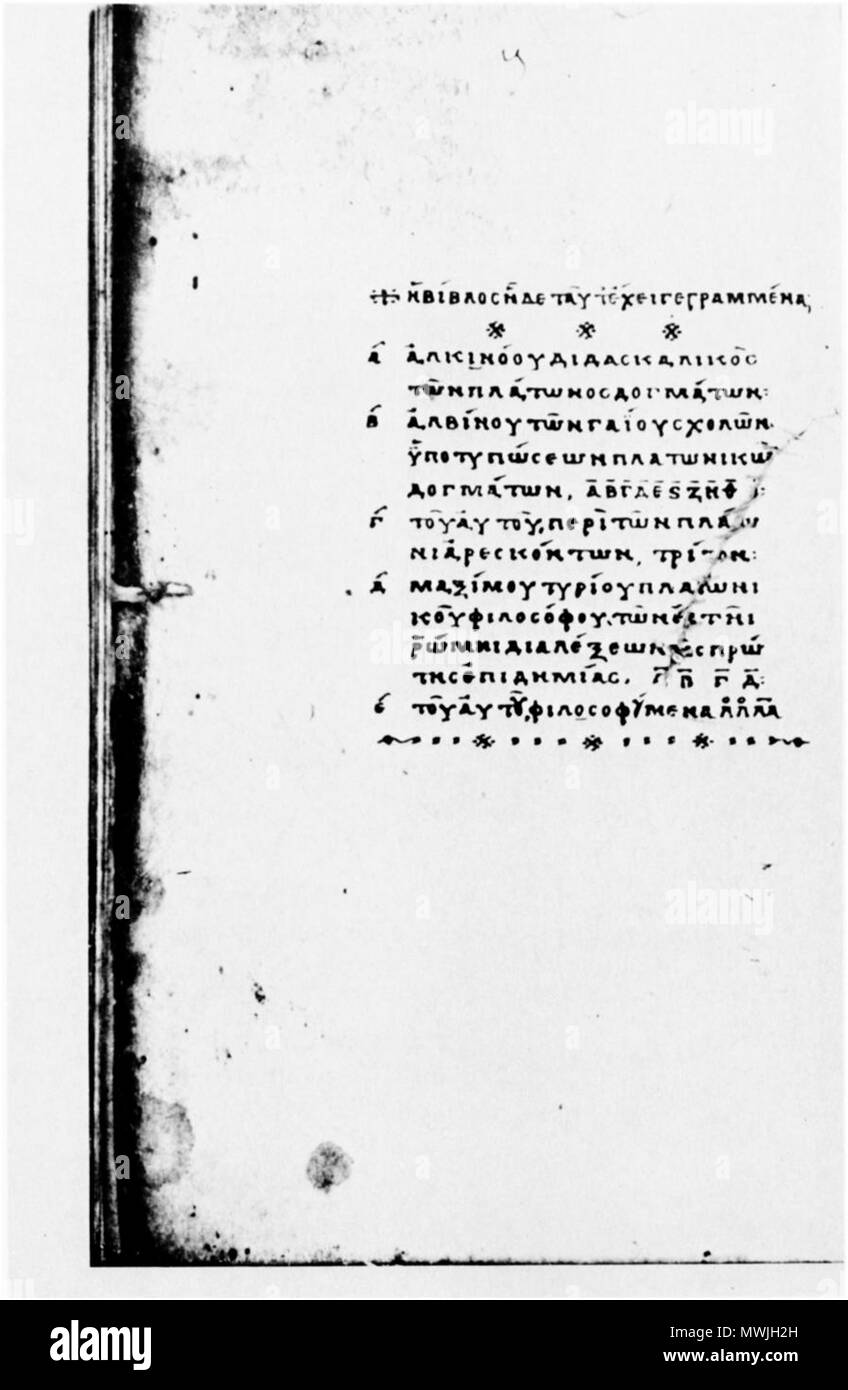 Ἡ ΒΊΒΛΟΣ ἭΔΕ ΤΑΥΤ ἜΧΕΙ ΓΕΓΡΑΜΜΈΝΑ
Ά ἈΛΚΙΝΌΟΥ ΔΙΔΑΣΚΑΛΙΚῸΣ
ΤΩ͂Ν ΠΛΆΤΩΝΟΣ ΔΟΓΜΆΤΩΝ:
Β́ ἈΛΒΊΝΟΥ ΤΩ͂Ν ΓΑΪ́ΟΥ ΣΧΟΛΩ͂Ν
ὙΠΟΤΥΠΏΣΕΩΝ ΠΛΑΤΩΝΙΚΩ͂
ΔΟΓΜΆΤΩΝ, Α̅ Β̅ Γ̅ Δ̅ Ε̅ Ϛ̅ Ζ̅ Η̅
Γ́ ΤΟΥ͂ ἈΥΤΟΥ͂, ΠΕΡῚ ΤΩ͂Ν ΠΛΆ
ΝΙ ἈΡΕΣΚΌΝΤΩΝ, ΤΡΊΤΟΝ:
Δ́ ΜΑΞΊΜΟΥ ΤΥΡΊΟΥ ΠΛΑΤΩΝΙ
ΚΟΥ͂ ΦΙΛΟΣΌΦΟΥ, ΤΩ͂Ν ἘΝ ΤΗ͂Ι
ῬΏΜΗΙ ΔΙΑΛΈΞΕΩΝ ΤΗ͂Σ ΠΡΏ
ΤΗΣ ἘΠΙΔΗΜΊΑΣ.
Έ ΤΟΥ͂ ἈΥΤΟΥ͂, ΦΙΛΟΣΟΦΎΜΕΝΑ
alamy
Image ID: MWJH2H
www.alamy.com